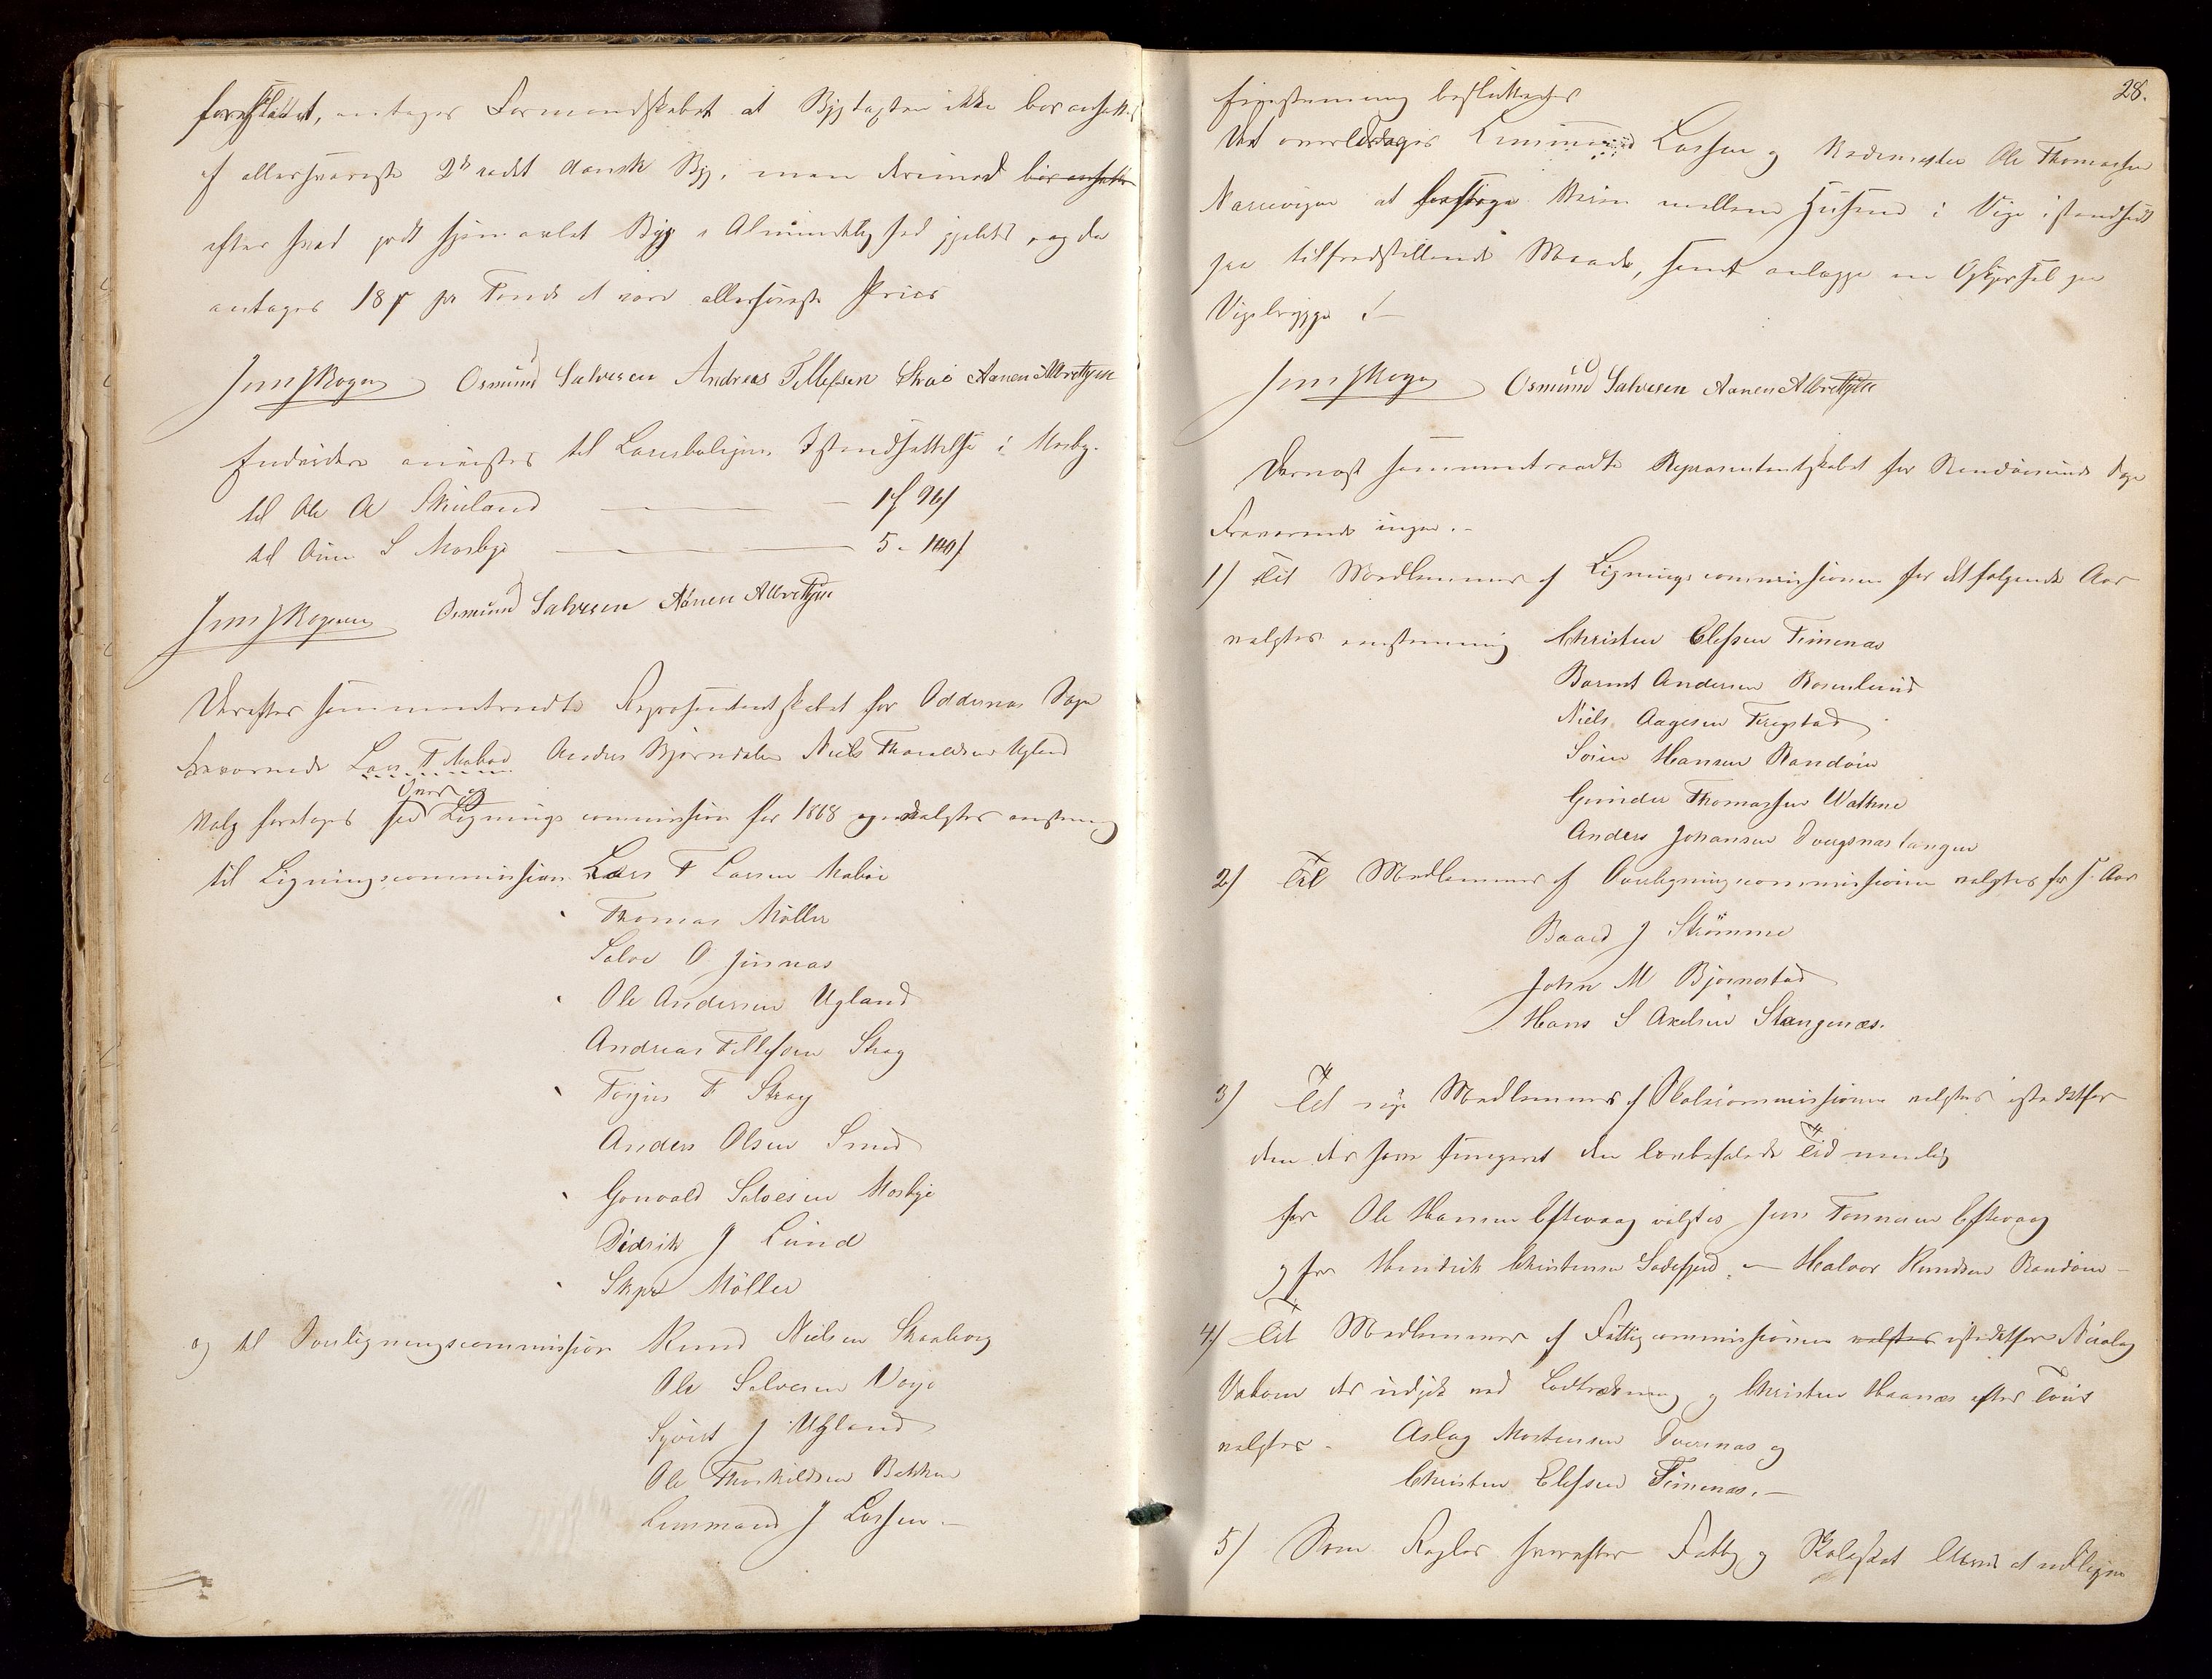 foreslaaet, antages Formandskabet at Bygtagsten ikke bør ansættes
af allersværeste 2 radet dansk Byg, men derimod bør ansættes
efter hvad godt hjemavlet Byg i Almindelighed gjelder, og da
antages 18 pr Tønde at være allerhøieste Priis
Osmund Salvesen Andreas Tellefsen Strai Aanen Albretsen
Endvidere anvistes til Lensboligens Istandsættelse i Mosby.
til Ole A Skuland 1 96
til S Mosbye 5
Osmund Salvesen Aanen Albretsen
Derefter sammentraadte Representantskabet for Oddernes Sogn
Fraværende Lars T Mabøe Anders Bjørndalen Niels Thoraldsen Ugland
Over og
Valg foretoges paa Lignings commission for 1868 og valgtes enstemmig
til Ligningscommission Lars T Larsen Mabøe
Thomas Möller
Salve O Jusnæs
Ole Andersen Ugland
Andreas Tellefsen Stray
T Stray
Anders Olsen
Gonvald Salvesen Mosbye
Didrik J Lund
Skpr Möller
og til Overligningscommission Knud Nielsen Skraaborg
Ole Salvesen Voye
Syvert J Ugland
Ole Thorkildsen Bakken
Lensmand J Lassen
28.
Eenstemmig besluttedes
Det overdrages Lensmand Lassen og Rodemester Ole Thomassen
Narvigen at Veien mellem Husene i Vige istandsat
paa tilfredsstillende Maade, samt anlægge en Opkjørsel paa
Vigebrygge
Osmund Salvesen Aanen Albretsen
Dernæst sammentraadte Representantskabet for Randøsunds Sogn
Fraværende ingen.
1) Til Medlemmer af Ligningscommissionen for det følgende Aar
valgtes enstemmig Christen Elefsen Timenæs
Bernt Andersen Rosenlund
Niels Aagesen Fregstad
Søren Hansen Randøen
Gunder Thomassen Wathne
Anders Johansen Dvergsnæstangen
2) Til Medlemmer af Overligningscommissionen valgtes for f. Aar
Baard J Strömme
John M Bjørnestad
Hans S Axelsen Stangenæs.
3) Til nye Medlemmer af Skolecommissionen valgtes istedetfor
dem der have fungeret den lovbefalede Tid nemlig
for Ole Hansen Eftevaag valgtes Jens Tønnesen Eftevaag
og for Hendrik Christensen Sodefjed - Halvor Knudsen Randøen
4) Til Medlemmer af Fattigcommissionen valgtes istedetfor Nicolay
der udgik ved Lodtrækning og Christen Haanæs efter Tour
valgtes. Aslag Mortensen Dvernæs og
Christen Elefsen Timenæs.
5) Som Regler hvorefter Fattig og Skoleskat bliver at udligne